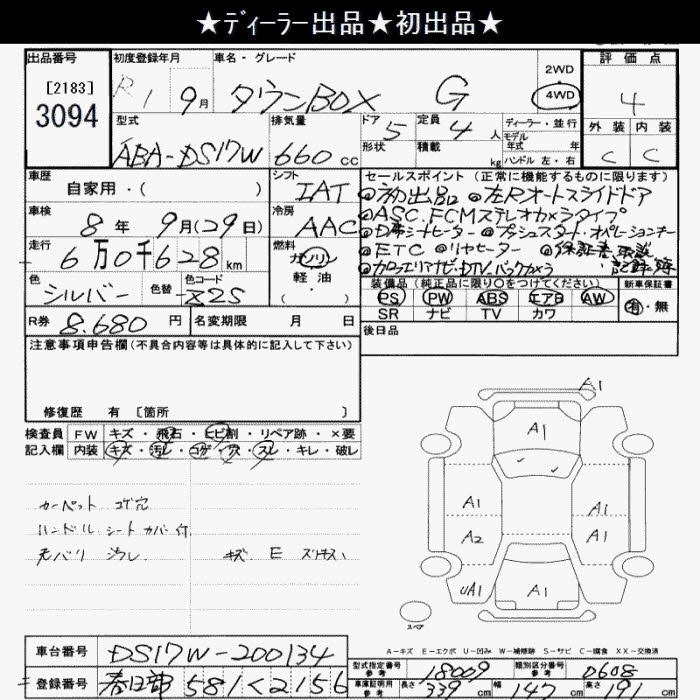 ★ディーラー出品★初出品★
出品番号
[2183]
3094
初度登録年月
R1 9月
車名・グレード
タウンBOX G
2WD
4WD
評価点
4
外装 内装
C C
型式
ABA-DS17W
排気量
660 cc
ドア 5
形状
定員 4人
積載 kg
ディーラー・並行
モデル年式 年
ハンドル 左・右
車歴
自家用・( )
シフト
IAT
車検
8年 9月(29日)
冷房
AAC
走行
6万0千628km
燃料
ガソリン
軽油
( ・ )
色
シルバー
色替
色コード
Z2S
R券 8.680円
名変期限 月 日
セールスポイント(正常に機能するものに限ります)
◎初出品 ◎左Rオートスライドドア
◎ASC.FCMステレオカメラタイプ
◎D席シートヒーター ◎プッシュスタート・オペレーションキー
◎ETC ◎リヤヒーター ◎保証書、取説
記録簿
◎カロッツェリアナビ・DTV.バックカメラ
装備品(純正品に限り○をつけてください)
PS PW ABS エアB AW
SR ナビ TV カワ
新車保証書
有・無
後日品
注意事項申告欄(不具合内容等は具体的に記入して下さい)
修復歴 有〔箇所 〕
検査員記入欄
FW キズ・飛石・ヒビ割・リペア跡・×要
内装 キズ・汚レ・コゲ・穴・スレ・キレ・破レ
カーペット コゲ穴
ハンドル シート カバー付
天バリ 汚レ キズ E
A1
A1
A1
A1
A2
A1
UA1
A1
スペア
A-キズ E-エクボ U-凹み W-補修跡 S-サビ C-腐食 XX-交換済
車台番号 DS17W-200134
登録番号 春日部 581く2156
型式指定番号 参考 18009
類別区分番号 参考 0608
車庫証明用 参考 長さ 339cm 幅 147cm 高さ 191cm